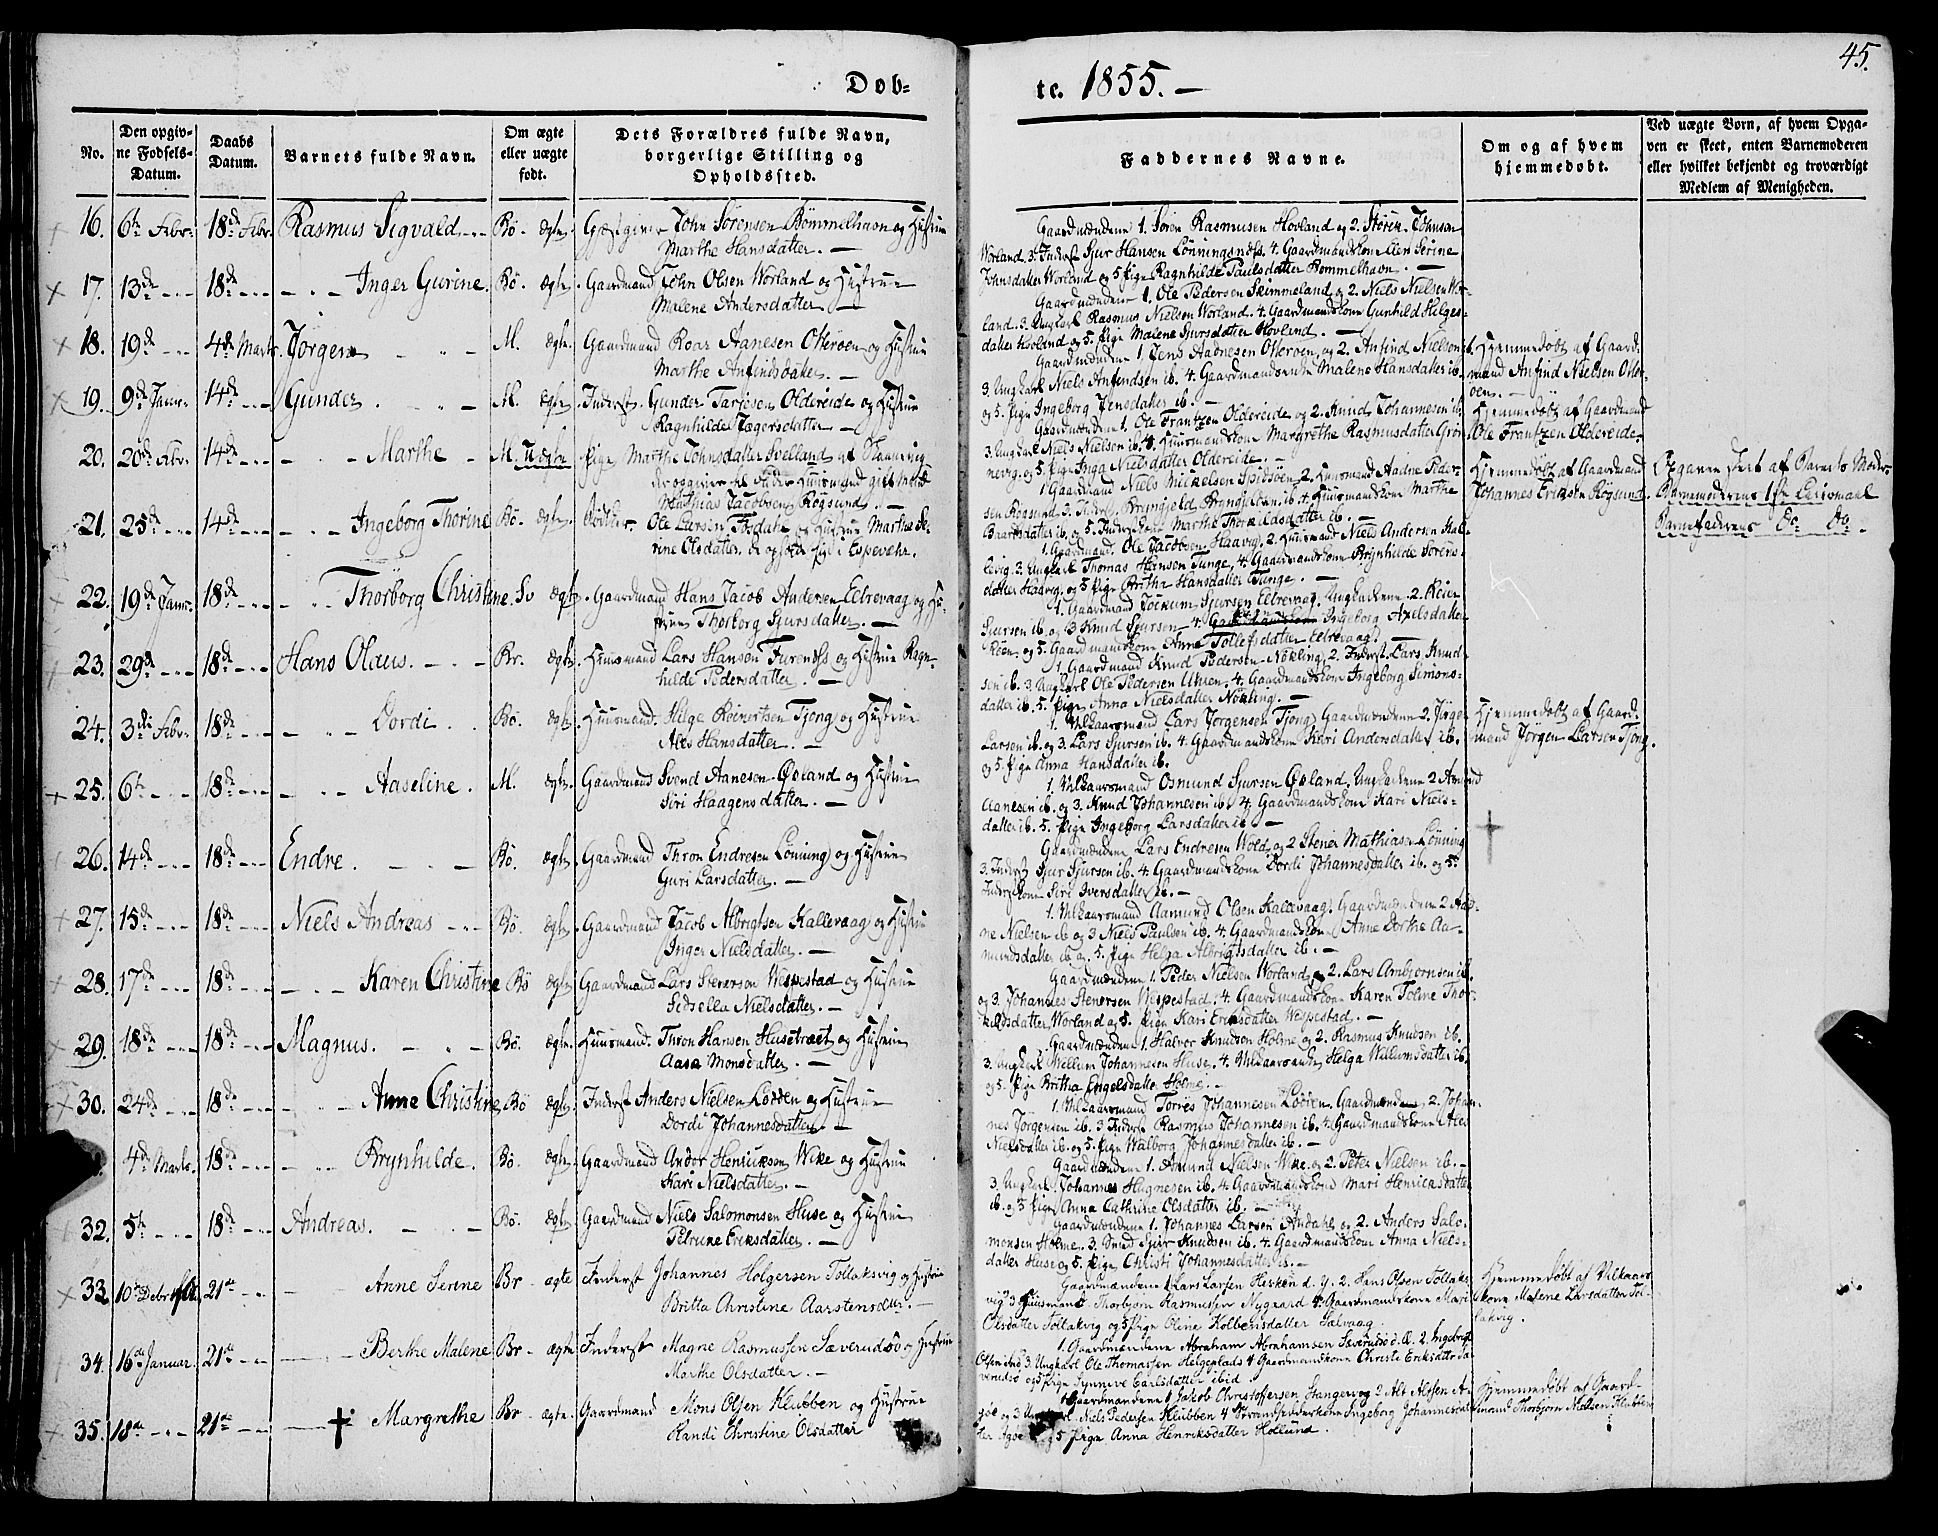 45.
Døb-
te. 1855. —
No.
Den opgiv-
ne Fødsels-
Datum.
Daabs
Datum.
Barnets fulde Navn.
Om ægte
eller uægte
født.
Dets Forældres fulde Navn,
borgerlige Stilling og
Opholdssted.
Faddernes Navne.
Om og af hvem
hjemmedøbt.
Ved uægte Børn, af hvem Opga-
ven er skeet, enten Barnemoderen
eller hvilket bekjendt og troværdigt
Medlem af Menigheden.
16. 6te Febr. 18de Febr. Rasmus Segvald Bø. ægte. Gjæstgiver John Sørensen Bømmelhavn og Hustrue
Marthe Hansdatter. —
Gaardmændene 1. Søren Rasmusen Hovland og 2. Støren Johnsen
Worland. 3. Inderst Sjur Hansen Lønningsnæss. 4. Gaardmandskone Elen Serine
Johnsdatter Worland og 5. Pige Ragnhilde Paulsdatter Bommelhavn. —
17. 13de 18de Inger Gurine. Bø. ægte. Gaardmand John Olsen Worland og Hustrue
Malene Andersdatter —
Gaardmændene 1. Ole Pedersen Skimmeland og 2. Niels Nielsen Wor-
land. 3. Ungkarl Rasmus Nielsen Worland. 4. Gaardmandskone Gunhild Helges-
datter Hovland og 5. Pige Malene Sjursdatter Hovland. —
18. 19de 4de Marts. Jørgen M. ægte. Gaardmand Roar Aanesen Otterøen og Hustrue
Marthe Anfindsdatter. —
Gaardmændene 1. Jens Aadnesen Otterøen, og 2. Anfind Nielsen
3. Ungkarl Niels Anfindsen ib. 4. Gaardmandsenke Malene Hansdatter ib.
og 5. Pige Ingeborg Jensdatter ib. —
Hjemmedøbt af Gaard-
mand Anfind Nielsen Otter-
øen. —
19. 9de Janr. 14de Gunder M. ægte. Inderst. Gunder Tarjesen Oldereide og Hustrue
Ragnhilde Jægersdatter —
Gaardmændene 1. Ole Frantzen Oldereide og 2. Knud Johannesen ib.
3. Ungkarl Niels Nielsen ib. 4. Huusmandskone Margrethe Rasmusdatter Grøn-
nevig. og 5. Pige Inga Nielsdatter Oldereide. —
Hjemmedøbt af Gaardmand
Ole Frantzen Oldereide.
20. 20de Febr. 14de Marthe M. Uægte Pige Marthe Johnsdatter Svelland af Skaanevig
der opgiver til Fader Huusmand gift Mand
Mathias Jacobsen Røgsund. —
1 Gaardmand Niels Mickelsen Spidsøen, 2. Huusmand Aadne Peder-
sen Røgsund. 3. Inderst Brynjeld Brynjelsen ib. 4. Huusmandskone Marthe
Baartsdatter ib. og 5. Inderstkone Marthe Thorkildsdatter ib. —
Hjemmedøbt af Gaardmand
Johannes Eriksen Røgsund.
Opgaven skeet af Barnets Moder
Barnemoderens 1ste Leiermaal
Barnefaderens do. do.
21. 25de 14de Ingeborg Thorine Bø. ægte. Ole Larsen Fosdahl og Hustrue Marthe Se-
rine Olsdatter, de opholde sig i Espevehr.
1. Gaardmand Ole Jacobsen Haavig, 2. Huusmand Niels Andersen Kal-
levig. 3. Ungkarl Thomas Hansen Tunge, 4. Gaardmandskone Brynhilde Sørens-
datter Haavig, og 5. Pige Britha Hansdatter Tunge. —
22. 19de Janr. 18de Thorborg Christine. Sv ægte. Gaardmand Hans Jacob Andersen Eltrevaag og Hu-
strue Thorborg Sjursdatter. —
1. Gaardmand Jockum Sjursen Eltrevaag. Ungkarlene 2. Reier
Sjursen ib. og 3 Knud Sjursen 4. Ingeborg Axelsdatter
Røen. og 5. Gaardmandskone Anne Tollefsdatter Eltrevaag.
23. 29de 18de Hans Olaus. Br. ægte. Huusmand Lars Hansen Furenæss og Hustrue Ragn-
hilde Pedersdatter. —
1 Gaardmand Knud Pedersen Nøkling, 2. Inderst. Lars Knud-
sen ib. 3. Ungkarl Ole Pedersen Uhren. 4. Gaardmandskone Ingeborg Simons-
datter ib. 5. Pige Anna Nielsdatter Nøkling. —
24. 3die Febr. 18de Dordi Bø. ægte. Huusmand. Helge Reinertsen Tjong og Hustrue
Ales Hansdatter. —
1. Vilkaarsmand Lars Jørgensen Tjong, Gaardmændene 2. Jørgen
Larsen ib. og 3. Lars Sjursen ib. 4. Gaardmandskone Kari Andersdatter ib.
og 5. Pige Anna Hansdatter ib.
Hjemmedøbt af Gaard-
mand Jørgen Larsen Tjong.
25. 6te 18de Aaseline. M. ægte. Gaardmand Svend Aanesen Øvland og Hustrue
Siri Haagensdatter. —
1. Vilkaarsmand Osmund Sjursen Øvland. Ungkarlene 2 Amund
Aanesen ib. og 3. Knud Johannesen ib. 4. Gaardmandskone Kari Niels-
datter ib. 5. Pige Ingeborg Larsdatter ib. —
26. 14de 18de Endre. Bø. ægte. Gaardmand Thron Endresen Lønning og Hustrue
Guri Larsdatter. —
Gaardmændene Lars Endresen Wold og 2 Stener Mathiasen Lønning
3. Inderst Sjur Sjursen ib. 4. Gaardmandskone Dordi Johannesdatter ib. og 5.
Inderstkone Siri Iversdatter ib. —
27. 15de 18de Niels Andreas Bø. ægte. Gaardmand Jacob Albrigtsen Kallevaag og Hustrue
Inger Nielsdatter. —
1. Vilkaarsmand Aamund Olsen Kallevaag, Gaardmændene 2 Aad-
ne Nielsen ib og 3 Niels Paulsen ib. 4. Gaardmandskone Anne Dorthe Aa-
mundsdatter ib og 5. Pige Helga Albrigtsdatter ib. —
28. 17de 18de Karen Christine Bø ægte Gaardmand Lars Stenersen Wespestad og Hustrue
Sidsella Nielsdatter. —
Gaardmændene 1. Peder Nielsen Worland, og 2. Lars Ambjørnsen ib.
og 3. Johannes Stenersen Wespestad. 4. Gaardmandskone Karen Toline Thor-
kildsdatter, Worland og 5. Pige Kari Eriksdatter Wespestad. —
29. 18de 18de Magnus. Bø. ægte. Huusmand. Thron Hansen Husetræet og Hustrue
Aasa Monsdatter. —
Gaardmændene 1. Halvor Knudsen Holme og 2. Rasmus Knudsen ib.
3. Ungkarl Wellum Johannesen Huse. 4. Vilkaarsenke Helga Wellumsdatter ib.
og 5. Pige Britha Engelsdatter Holme. —
30. 24de 18de Anne Christine. Bø ægte. Inderst Anders Nielsen Lodden og Hustrue
Dordi Johannesdatter —
1. Vilkaarsmand Torres Johannesen Lodden. Gaardmændene 2. Johan-
nes Jørgensen ib. 3 Inderst Rasmus Johannesen ib. 4. Gaardmandskone Ales
Nielsdatter ib. og 5. Pige Walborg Johannesdatter ib. —
4de Marts. 18de Brynhilde. Bø. ægte. Gaardmand Andor Henriksen Wike og Hustrue
Kari Nielsdatter. —
Gaardmændene 1. Amund Nielsen Wike og 2. Peter Nielsen ib. —
3. Ungkarl Johannes Hugnesen ib. 4. Gaardmandskone Mari Henriksdatter
ib. og 5 Pige Anna Cathrine Olsdatter ib. —
32. 5te 18de Andreas. Bø. ægte. Gaardmand Niels Salomonsen Huse og Hustrue
Petrine Eriksdatter. —
Gaardmændene 1. Johannes Larsen Andahl og 2. Anders Salo-
monsen Holme. 3. Smed Sjur Knudsen ib. 4. Gaardmandskone Anna Niels-
datter Huse og 5. Pige Christi Johannesdatter ib. —
33. 10de 21de Anne Serine Br. ægte Inderst Johannes Holgersen Tollaksvig og Hustrue
Britta Christine Aarstensdtr. —
Gaardmændene 1 Lars Larsen Hisken d. y. 2. Hans Olsen Tollaks-
vig 3 Huusmand Thorbjørn Rasmussen Nygaard 4. Gaardmandskone Mari
Olsdatter Tollakvig og 5 Pige Oline Kolbensdatter Salvaag.
Hjemmedøbt af Vilkaars-
kone Malene Larsdatter Tol-
lakvig.
34. 16de Januar 21de Berthe Malene Br. ægte Inderst Magne Rasmussen Sæverudsø og Hustrue
Marthe Olsdatter. —
1. Gaardmændene Abraham Abrahamsen Sæverudsø d. Æ. 2. Ingebregt
Olsen ibid 3. Ungkarl Ole Thomassen Helgeplads 4 Gaardmandskone Christi Eriksdatter Sæ-
verudsø og 5 Pige Synneve Carlsdatter ibid
35. 18de 21de † Margrethe Br. ægte. Gaardmand Mons Olsen Klubben og Hustrue
Randi Christine Olsdatter
Gaardmændene 1 Jakob Christoffersen Stangevog 2 Alf Alfsen A-
gøe og 3 Niels Pedersen Klubben 4 Strandsidderkone Ingeborg Johannesdat-
ter Agøe 5 Pige Anna Henriksdatter Hollund.
Hjemmedøbt af Gaard-
mand Thorbjørn Molsen Klubben